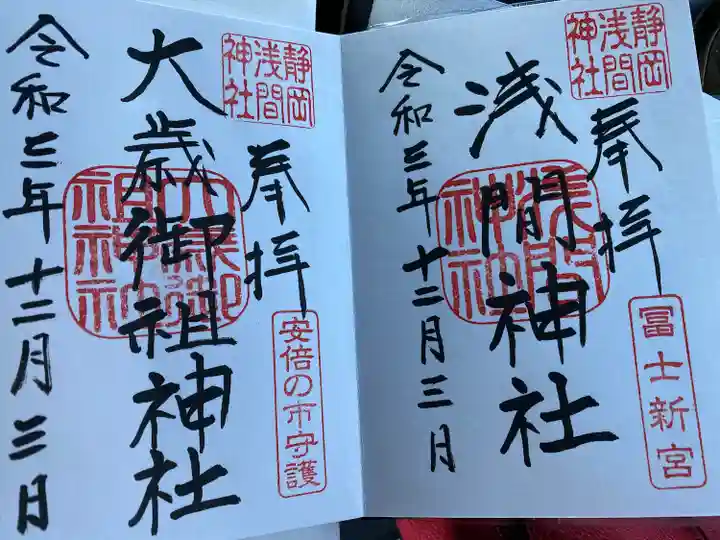 静岡
浅間
神社
奉拝
冨士新宮
浅間神社
浅間
神社
令和三年十二月三日
静岡
浅間
神社
奉拝
安倍の市守護
大歳御祖神社
大歳御
祖神社
令和三年十二月三日